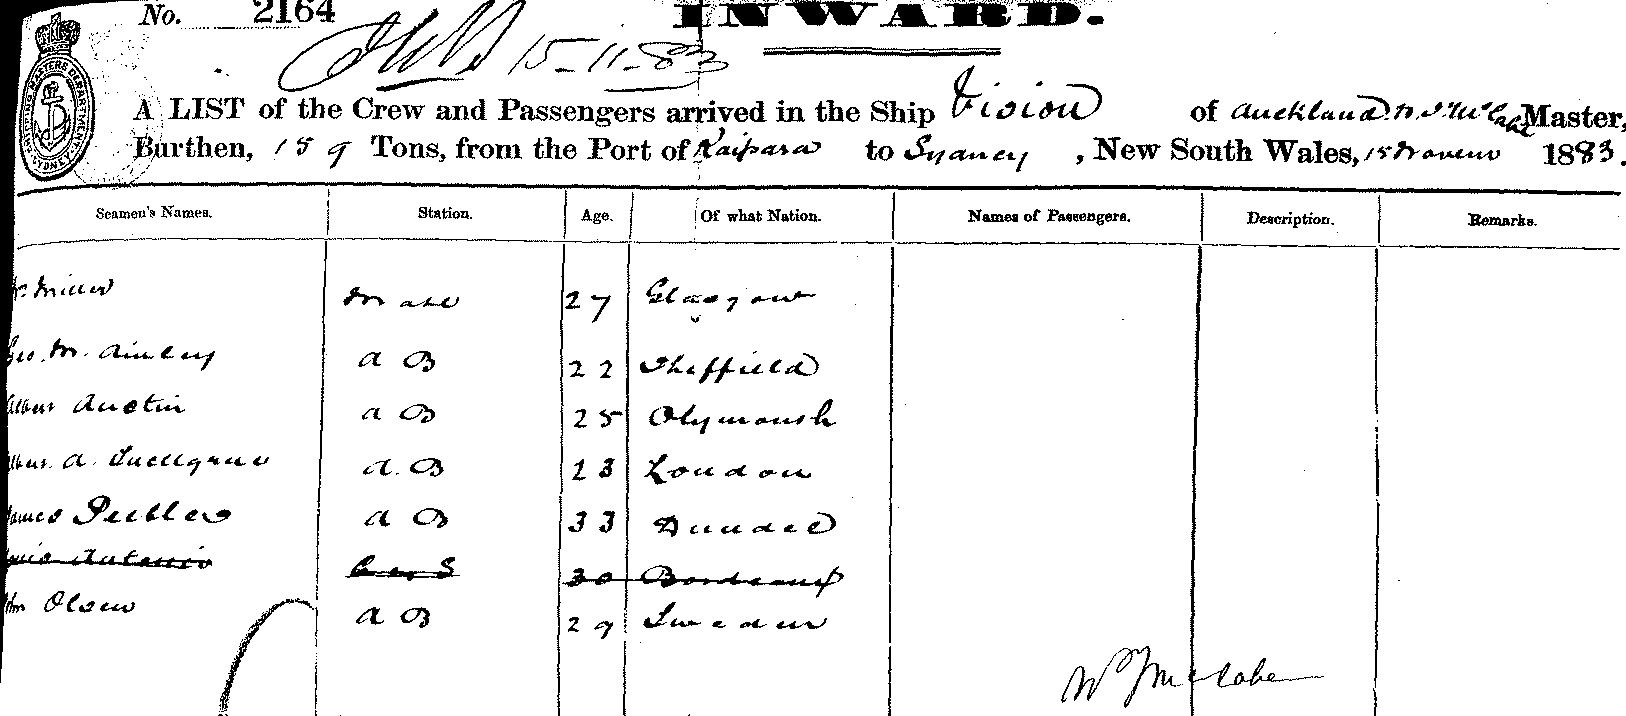 No. 2164 INWARD.
15-11-83
A LIST of the Crew and Passengers arrived in the Ship Vision of Auckland W. J. McCabe Master,
Burthen, 159 Tons, from the Port of Kaipara to Sydney, New South Wales, 15 Novem 1883.
Seamen's Names. Station. Age. Of what Nation. Names of Passengers. Description. Remarks.
Miller Mate 27 Glasgow
Geo. M. Ainley A B 22 Sheffield
Albert Austin A B 25 Plymouth
A. A. B 23 London
James Peebles A B 33 Dundee
Antonio 30 Bordeaux
Olsen A B 29 Sweden
W J McCabe